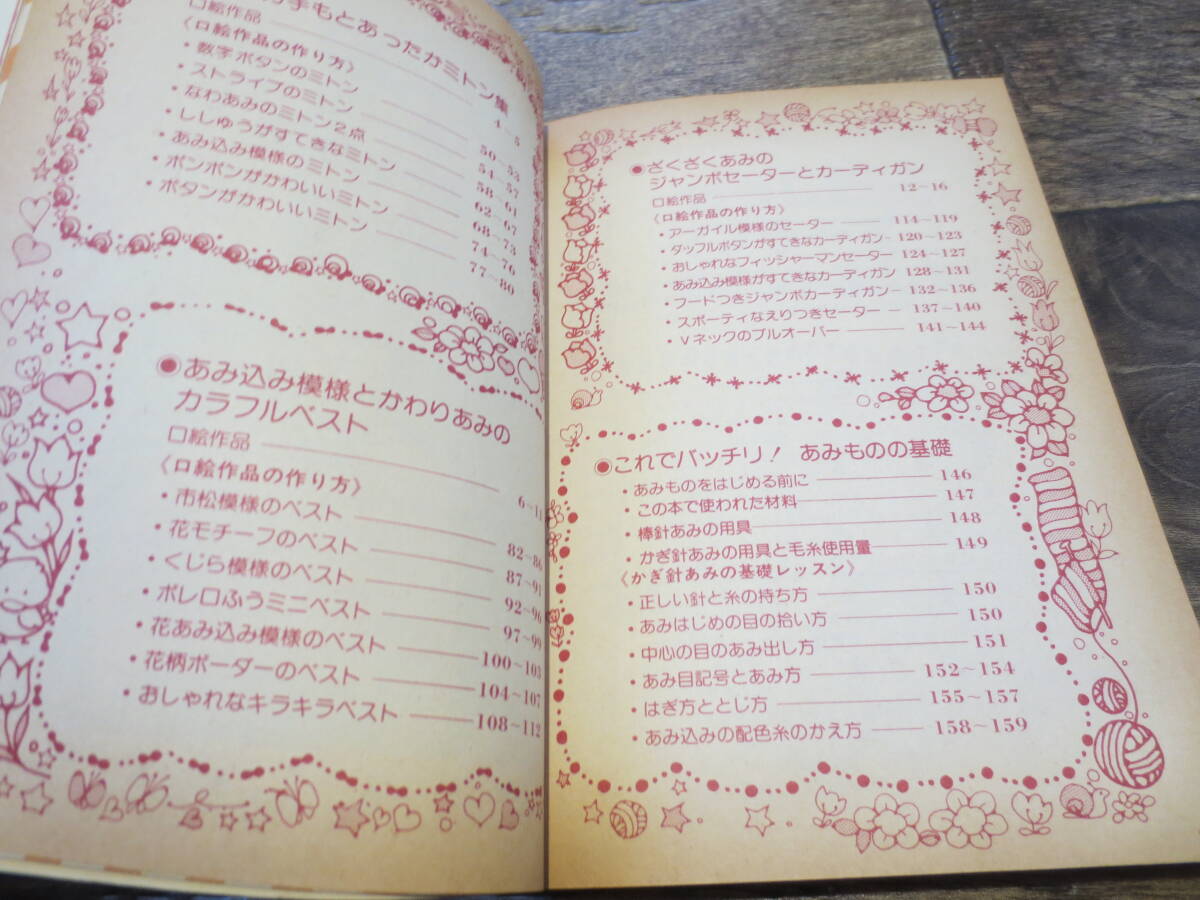 手もとあったかミトン集
口絵作品 4~5
〈口絵作品の作り方〉
・数字ボタンのミトン 50~53
・ストライプのミトン 54~57
・なわあみのミトン2点 58~61
・ししゅうがすてきなミトン 62~67
・あみ込み模様のミトン 68~73
・ポンポンがかわいいミトン 74~76
・ボタンがかわいいミトン 77~80
●あみ込み模様とかわりあみの
カラフルベスト
口絵作品 6~11
〈口絵作品の作り方〉
・市松模様のベスト 82~86
・花モチーフのベスト 87~91
・くじら模様のベスト 92~96
・ボレロふうミニベスト 97~99
・花あみ込み模様のベスト 100~103
・花柄ボーダーのベスト 104~107
・おしゃれなキラキラベスト 108~112
●ざくざくあみの
ジャンボセーターとカーディガン
口絵作品 12~16
〈口絵作品の作り方〉
・アーガイル模様のセーター 114~119
・ダッフルボタンがすてきなカーディガン 120~123
・おしゃれなフィッシャーマンセーター 124~127
・あみ込み模様がすてきなカーディガン 128~131
・フードつきジャンボカーディガン 132~136
・スポーティなえりつきセーター 137~140
・Vネックのプルオーバー 141~144
●これでバッチリ! あみものの基礎
・あみものをはじめる前に 146
・この本で使われた材料 147
・棒針あみの用具 148
・かぎ針あみの用具と毛糸使用量 149
〈かぎ針あみの基礎レッスン〉
・正しい針と糸の持ち方 150
・あみはじめの目の拾い方 150
・中心の目のあみ出し方 151
・あみ目記号とあみ方 152~154
・はぎ方ととじ方 155~157
・あみ込みの配色糸のかえ方 158~159